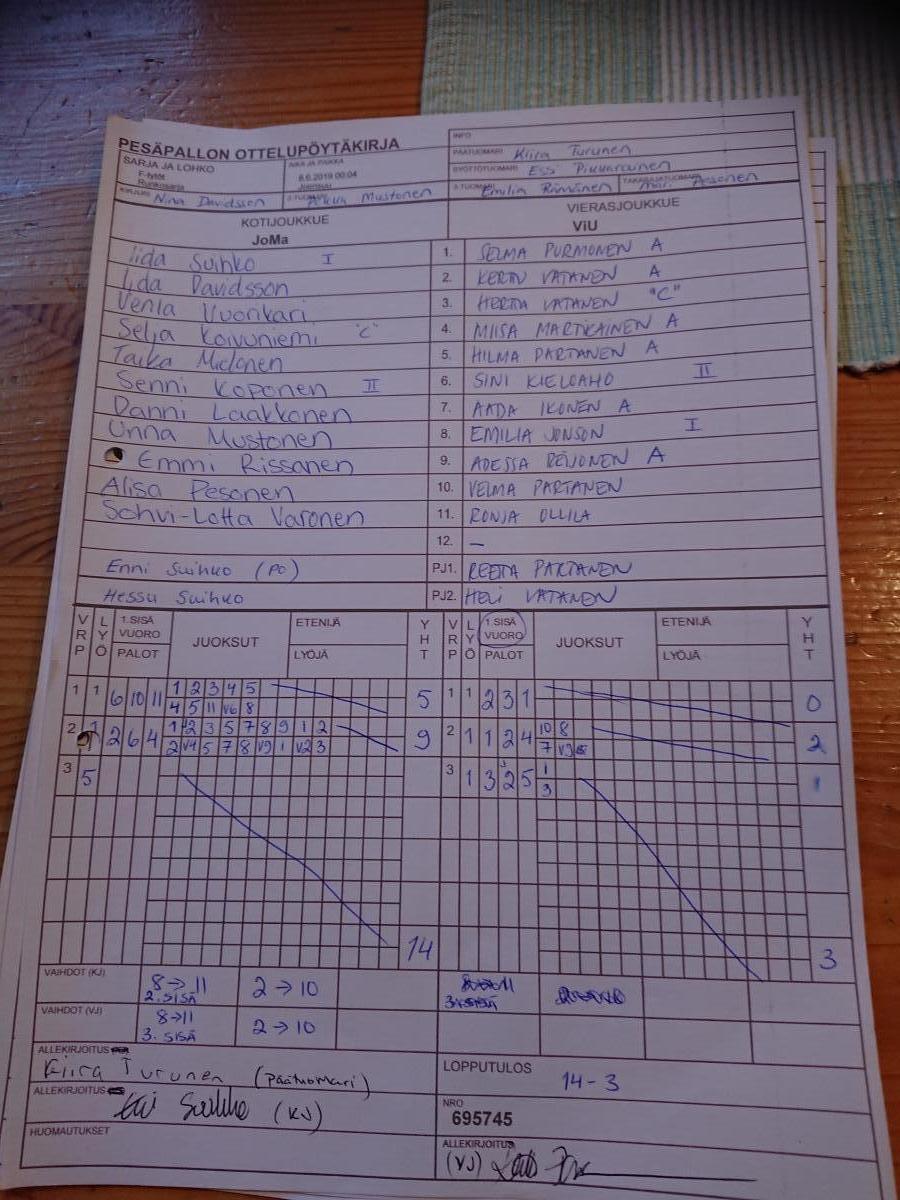 PESÄPALLON OTTELUPÖYTÄKIRJA
INFO
SARJA JA LOHKO
F-tytöt
Runkosarja
AIKA JA PAIKKA
8.6.2019 00:04
Joensuu
PÄÄTUOMARI Kiira Turunen
SYÖTTÖTUOMARI Essi
KIRJURI Nina Davidsson
2-TUOMARI Mustonen
3-TUOMARI Emilia
TAKARAJATUOMARI Pesonen
KOTIJOUKKUE
JoMa
VIERASJOUKKUE
ViU
Iida Suihko I 1. SELMA PURMONEN A
Iida Davidsson 2. KERTTU VATANEN A
Venla Vuorikari 3. HERTTA VATANEN "C"
Selja Koivuniemi "C" 4. MIISA MARTIKAINEN A
Taika Mielonen 5. HILMA PARTANEN A
Senni Koponen II 6. SINI KIELOAHO II
Danni Laakkonen 7. AADA IKONEN A
Unna Mustonen 8. EMILIA JONSON I
Emmi Rissanen 9. ADESSA REIJONEN A
Alisa Pesonen 10. VELMA PARTANEN
Sohvi-Lotta Varonen 11. RONJA OLLILA
12. –
Enni Suihko (PO) PJ1. REETTA PARTANEN
Hessu Suihko PJ2. HELI VATANEN
VRP LYÖ 1.SISÄ VUORO PALOT JUOKSUT ETENIJÄ LYÖJÄ YHT VRP LYÖ 1.SISÄ VUORO PALOT JUOKSUT ETENIJÄ LYÖJÄ YHT
1 1 6 10 11 1 2 3 4 5 5 1 1 2 3 1 0
4 5 11 V6 8
2 2 6 4 1 2 3 5 7 8 9 1 2 9 2 1 1 2 4 10 8 2
2 V4 5 7 8 V9 1 V2 3 7 V9
3 5 3 1 3 2 5 1 1
3
14 3
VAIHDOT (KJ) 8→11 2→10
2. SISÄ
VAIHDOT (VJ) 8→11 2→10
3. SISÄ
ALLEKIRJOITUS
Kiira Turunen (päätuomari)
LOPPUTULOS
14-3
ALLEKIRJOITUS
Suihko (KJ)
NRO
695745
HUOMAUTUKSET
ALLEKIRJOITUS
(VJ)